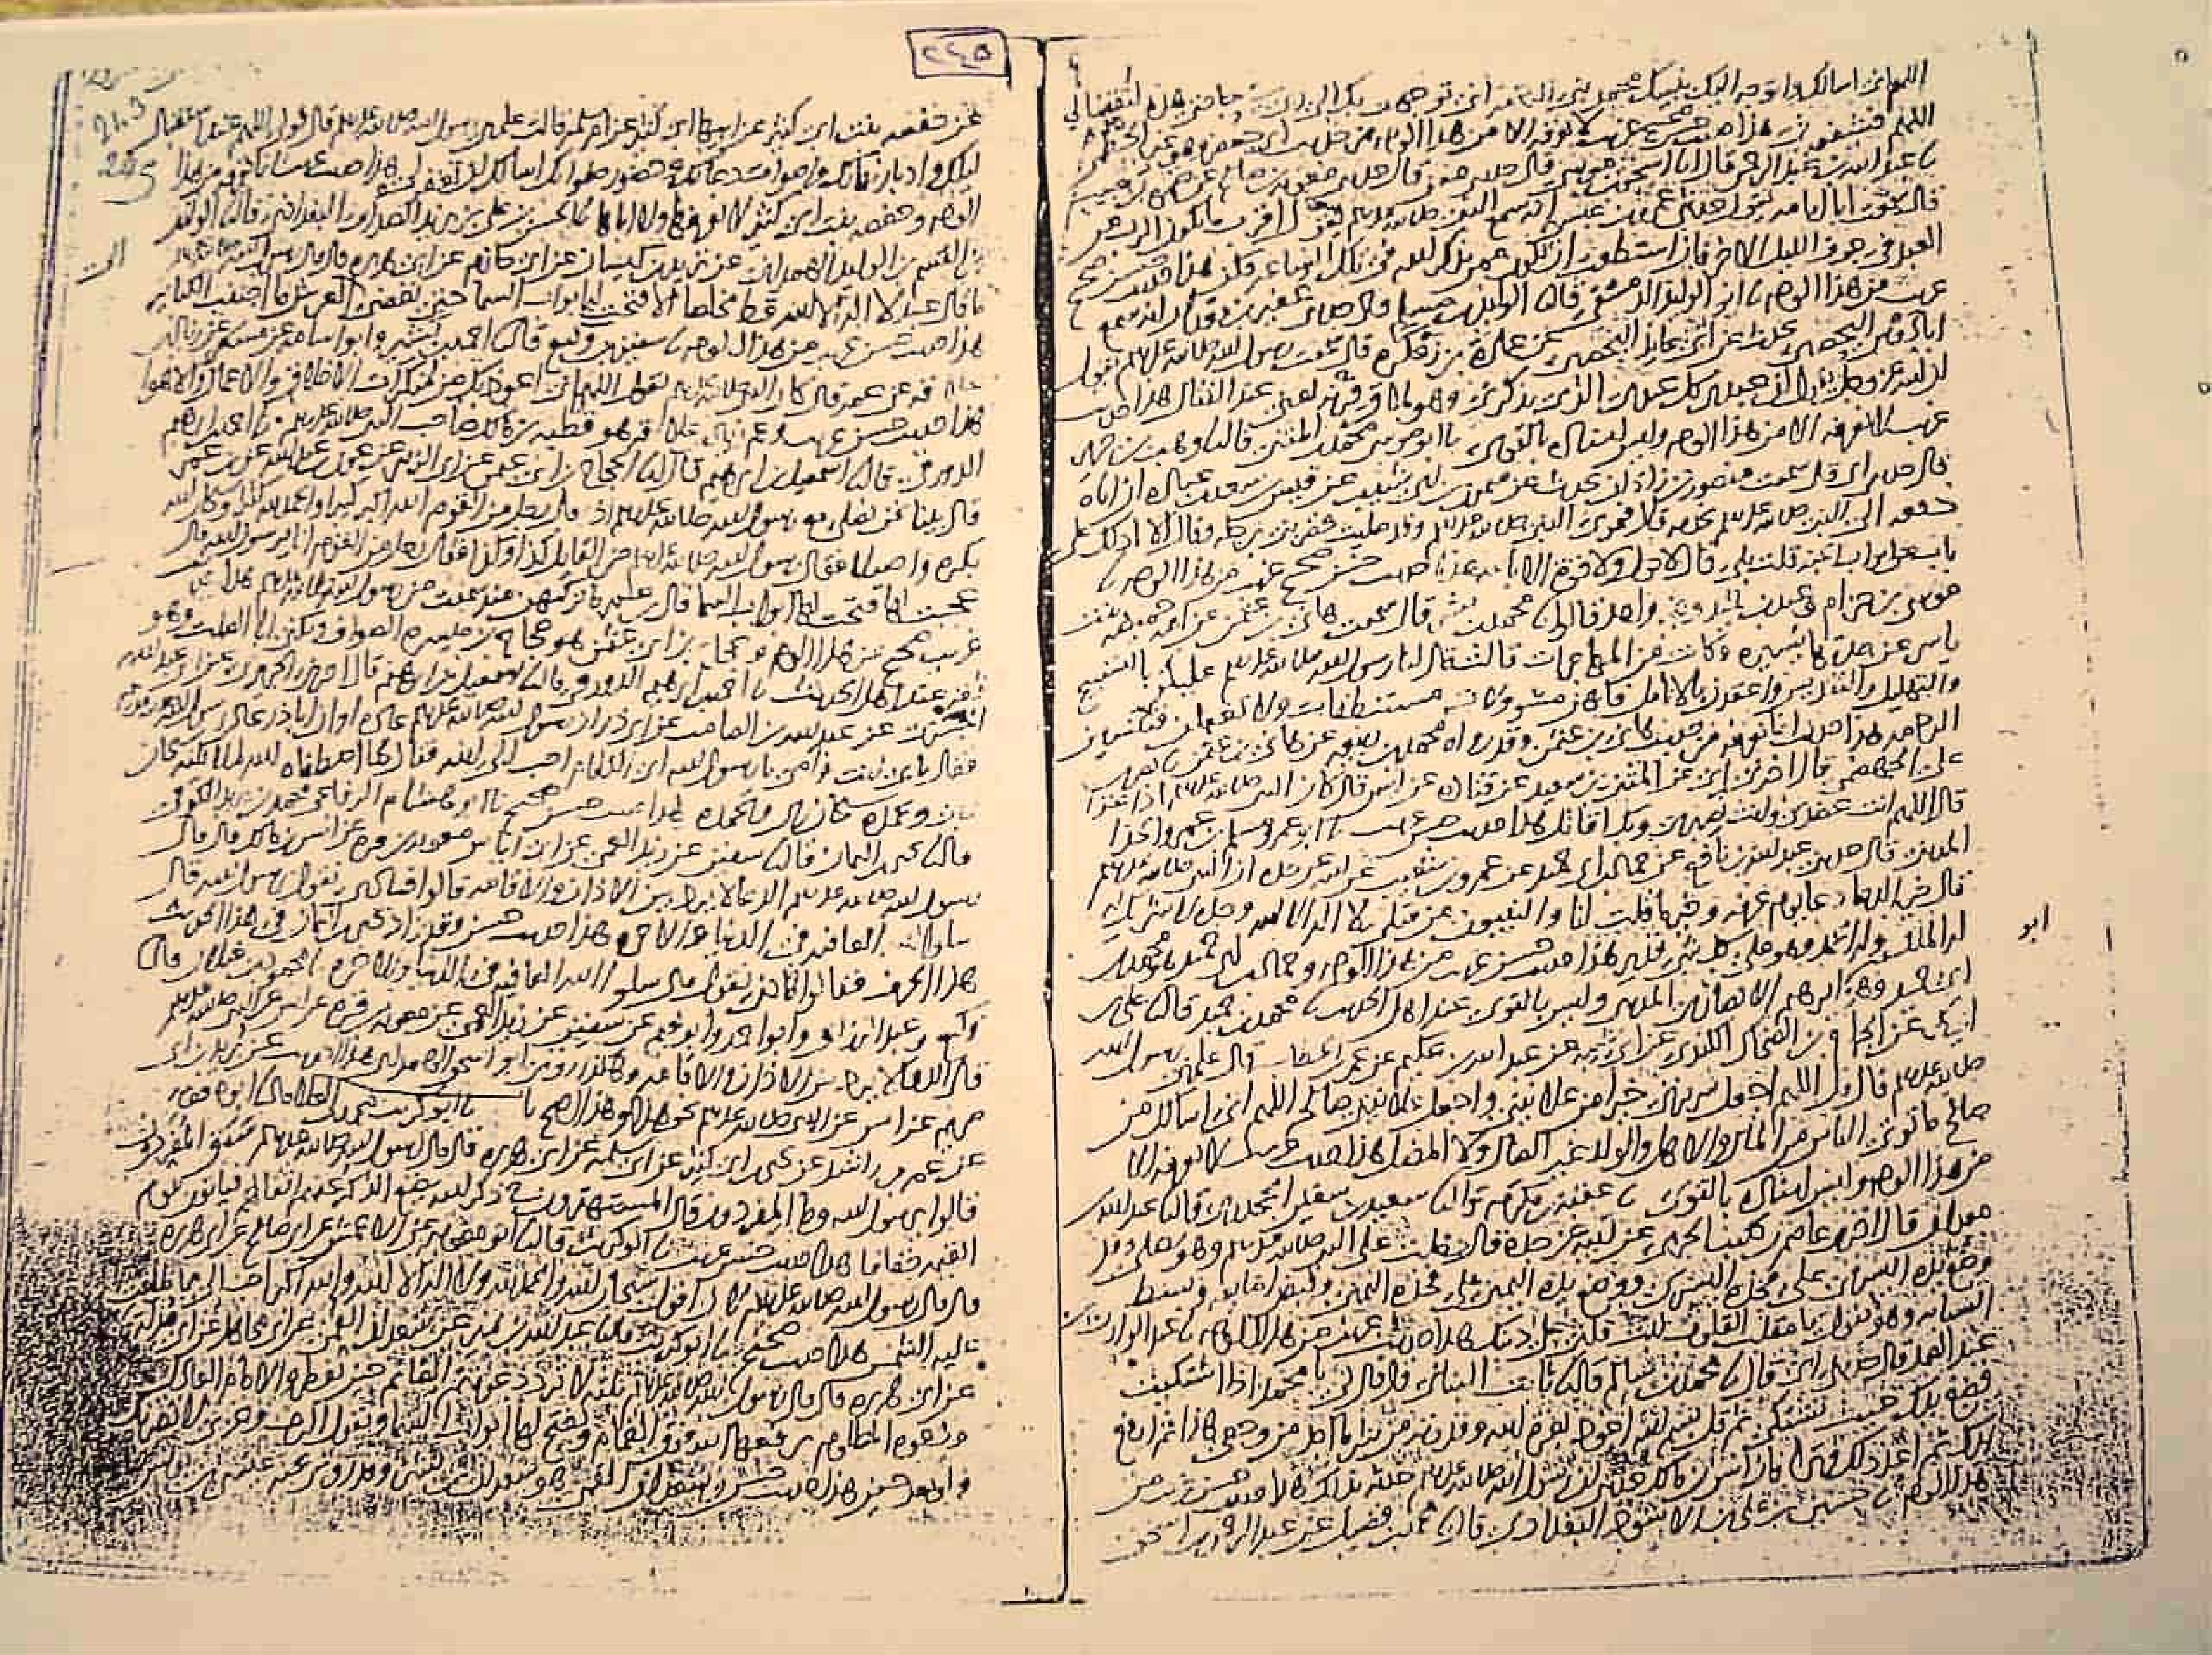 اللهم اني اسالك واتوجه اليك بنبيك محمد نبي الرحمه اني توجهت بك الى ربي في حاجتي هذه لتقضى لي
اللهم فشفعه في هذا حديث حسن صحيح غريب لا نعرفه الا من هذا الوجه من حديث ابي جعفر وهو غير الخطمي
نا عبد الله بن عبد الرحمن قال انا اسحق بن موسى قال حدثني معن قال حدثني معويه بن صالح عن ضمره بن حبيب
قال سمعت ابا امامه يقول حدثني عمرو بن عبسه انه سمع النبي صلى الله عليه وسلم يقول اقرب ما يكون الرب من
العبد في جوف الليل الاخر فان استطعت ان تكون ممن يذكر الله في تلك الساعه فكن هذا حديث حسن صحيح
غريب من هذا الوجه نا ابو الوليد الدمشقي قال نا الوليد بن مسلم قال حدثني عفير بن معدان انه سمع
ابا دوس اليحصبي يحدث عن ابن عايذ اليحصبي عن عمارة بن زعكرة قال سمعت رسول الله صلى الله عليه وسلم يقول
ان الله عز وجل يقول ان عبدي كل عبدي الذي يذكرني وهو ملاق قرنه يعني عند القتال هذا حديث
غريب لا نعرفه الا من هذا الوجه وليس اسناده بالقوي نا ابو موسى محمد بن المثنى قال نا وهب بن جرير
قال حدثني ابي قال سمعت منصور بن زاذان يحدث عن ميمون بن ابي شبيب عن قيس بن سعد بن عباده ان اباه
دفعه الى النبي صلى الله عليه وسلم يخدمه قال فمر بي النبي صلى الله عليه وسلم وقد صليت فضربني برجله وقال الا ادلك على
باب من ابواب الجنه قلت بلى قال لا حول ولا قوة الا بالله هذا حديث حسن صحيح غريب من هذا الوجه نا
موسى بن حزام وعبد بن حميد وغير واحد قالوا نا محمد بن بشر قال سمعت هاني بن عثمن عن امه حميضه بنت
ياسر عن جدتها يسيره وكانت من المهاجرات قالت قال لنا رسول الله صلى الله عليه وسلم عليكن بالتسبيح
والتهليل والتقديس واعقدن بالانامل فانهن مسؤولات مستنطقات ولا تغفلن فتنسين
الرحمه هذا حديث انما نعرفه من حديث هاني بن عثمن وقد رواه محمد بن ربيعه عن هاني بن عثمن نا نصر بن
علي الجهضمي قال اخبرني ابي عن المثنى بن سعيد عن قتاده عن انس قال كان النبي صلى الله عليه وسلم اذا غزا
قال اللهم انت عضدي وانت نصيري وبك اقاتل هذا حديث حسن غريب نا ابو عمرو مسلم بن عمرو الحذا
المديني قال حدثني عبد الله بن نافع عن حماد بن ابي حميد عن عمرو بن شعيب عن ابيه عن جده ان النبي صلى الله عليه وسلم
قال خير الدعا دعا يوم عرفه وخير ما قلت انا والنبيون من قبلي لا اله الا الله وحده لا شريك له
له الملك وله الحمد وهو على كل شي قدير هذا حديث حسن غريب من هذا الوجه وحماد بن ابي حميد هو محمد بن
ابي حميد وهو ابو ابرهيم الانصاري المديني وليس بالقوي عند اهل الحديث نا محمد بن حميد قال نا علي بن
ابي بكر عن الجراح بن الضحاك الكندي عن ابي شيبه عن عبد الله بن عكيم عن عمر بن الخطاب قال علمني رسول الله
صلى الله عليه وسلم قال قل اللهم اجعل سريرتي خيرا من علانيتي واجعل علانيتي صالحه اللهم اني اسالك من
صالح ما توتي الناس من المال والاهل والولد غير الضال ولا المضل هذا حديث غريب لا نعرفه الا
من هذا الوجه وليس اسناده بالقوي نا عقبه بن مكرم قال نا سعيد بن سفين الجحدري قال نا عبد الله بن
معدان قال اخبرني عاصم بن كليب الجرمي عن ابيه عن جده قال دخلت على النبي صلى الله عليه وسلم وهو يصلي وقد
وضع يده اليسرى على فخذه اليسرى ووضع يده اليمنى على فخذه اليمنى وقبض اصابعه وبسط
السبابه وهو يقول يا مقلب القلوب ثبت قلبي على دينك هذا حديث غريب من هذا الوجه نا عبد الوارث بن
عبد الصمد قال حدثني ابي قال نا محمد بن سالم قال نا ثابت البناني قال قال لي يا محمد اذا اشتكيت
فضع يدك حيث تشتكي ثم قل بسم الله اعوذ بعزة الله وقدرته من شر ما اجد من وجعي هذا ثم ارفع
يدك ثم اعد ذلك وترا فان انس بن مالك حدثني ان رسول الله صلى الله عليه وسلم حدثه بذلك هذا حديث حسن غريب من
هذا الوجه نا حسين بن علي بن الاسود البغدادي قال نا محمد بن فضيل عن عبد الرحمن بن اسحق
ابو
٢٤٥
245
عن حفصه بنت ابي كثير عن ابيها ابي كثير عن ام سلمه قالت علمني رسول الله صلى الله عليه وسلم قال قولي اللهم عند استقبال
ليلك وادبار نهارك واصوات دعاتك وحضور صلواتك اسالك ان تغفر لي هذا حديث غريب انما نعرفه من هذا
الوجه وحفصه بنت ابي كثير لا نعرفها ولا اباها نا الحسين بن علي بن يزيد الصدائي البغدادي قال نا الوليد
بن القسم بن الوليد الهمداني عن يزيد بن كيسان عن ابي حازم عن ابي هريره قال قال رسول الله صلى الله عليه وسلم
ما قال عبد لا اله الا الله قط مخلصا الا فتحت له ابواب السما حتى تفضي الى العرش ما اجتنب الكباير
هذا حديث حسن غريب من هذا الوجه نا سفين بن وكيع قال نا احمد بن بشير وابو اسامه عن مسعر عن زياد بن
علاقه عن عمه قال كان النبي صلى الله عليه وسلم يقول اللهم اني اعوذ بك من منكرات الاخلاق والاعمال والاهوا
هذا حديث حسن غريب وعم زياد بن علاقه هو قطبه بن مالك صاحب النبي صلى الله عليه وسلم نا احمد بن ابرهيم
الدورقي قال نا اسمعيل بن ابرهيم قال نا الحجاج بن ابي عثمن عن ابي الزبير عن عون بن عبد الله عن ابن عمر
قال بينا نحن نصلي مع رسول الله صلى الله عليه وسلم اذ قال رجل من القوم الله اكبر كبيرا والحمد لله كثيرا وسبحان الله
بكره واصيلا فقال رسول الله صلى الله عليه وسلم من القايل كذا وكذا فقال رجل من القوم انا يرسول الله قال
عجبت لها فتحت لها ابواب السما قال ابن عمر ما تركتهن منذ سمعت من رسول الله صلى الله عليه وسلم هذا حديث حسن
غريب صحيح من هذا الوجه وحجاج بن ابي عثمن هو حجاج بن ميسره الصواف ويكنى ابا الصلت وهو
ثقه عند اهل الحديث نا احمد بن ابرهيم الدورقي قال نا اسمعيل بن ابرهيم قال اخبرنا الجريري عن ابي عبد الله
الجسري عن عبد الله بن الصامت عن ابي ذر ان رسول الله صلى الله عليه وسلم عاده او ان ابا ذر عاد رسول الله صلى الله عليه وسلم
فقال بابي انت وامي يا رسول الله اي الكلام احب الى الله فقال ما اصطفاه الله لملايكته سبحان
ربي وبحمده سبحان ربي وبحمده هذا حديث حسن صحيح نا ابو هشام الرفاعي محمد بن يزيد الكوفي
قال نا يحيى بن اليمان قال نا سفين عن زيد العمي عن ابي اياس معويه بن قره عن انس بن مالك قال قال
رسول الله صلى الله عليه وسلم الدعا لا يرد بين الاذان والاقامه قالوا فماذا نقول يرسول الله قال
سلوا الله العافيه في الدنيا والاخره هذا حديث حسن وقد زاد يحيى بن اليمان في هذا الحديث
هذا الحرف فقالوا فماذا نقول قال سلوا الله العافيه في الدنيا والاخره نا محمود بن غيلان قال نا
وكيع وعبد الرزاق وابو احمد وابو نعيم عن سفين عن زيد العمي عن معويه بن قره عن انس عن النبي صلى الله عليه وسلم
قال الدعا لا يرد بين الاذان والاقامه وهكذا روى ابو اسحق الهمداني هذا الحديث عن بريد بن ابي
مريم عن انس عن النبي صلى الله عليه وسلم نحو هذا وهذا اصح نا ابو كريب محمد بن العلا قال نا ابو معويه
عن عمر بن راشد عن يحيى بن ابي كثير عن ابي سلمه عن ابي هريره قال قال رسول الله صلى الله عليه وسلم سبق المفردون
قالوا يرسول الله وما المفردون قال المستهترون في ذكر الله يضع الذكر عنهم اثقالهم فياتون يوم
القيمه خفافا هذا حديث حسن غريب نا ابو كريب قال نا ابو معويه عن الاعمش عن ابي صالح عن ابي هريره
قال قال رسول الله صلى الله عليه وسلم لان اقول سبحان الله والحمد لله ولا اله الا الله والله اكبر احب الي مما طلعت
عليه الشمس هذا حديث صحيح نا ابو كريب قال نا عبد الله بن نمير عن سعدان القمي عن ابي مجاهد عن ابي مدله
عن ابي هريره قال قال رسول الله صلى الله عليه وسلم ثلثه لا ترد دعوتهم الصائم حين يفطر والامام العادل
ودعوه المظلوم يرفعها الله فوق الغمام ويفتح لها ابواب السما ويقول الرب وعزتي لانصرنك
ولو بعد حين هذا حديث حسن وسعدان القمي هو سعدان بن بشر وقد روى عنه عيسى بن يونس